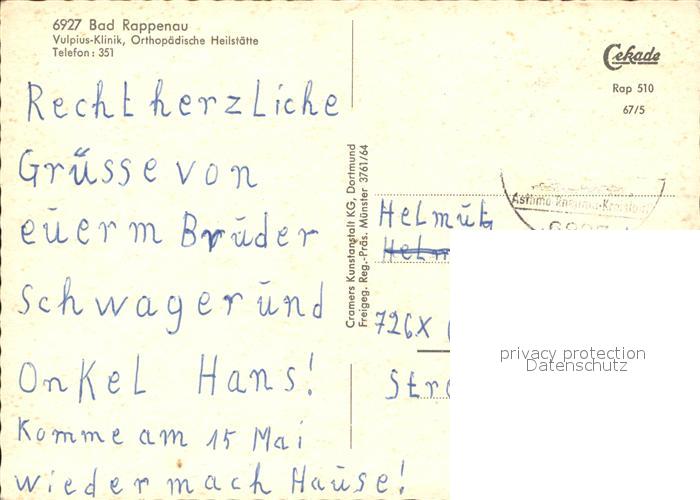 6927 Bad Rappenau
Vulpius-Klinik, Orthopädische Heilstätte
Telefon: 351
Cekade
Rap 510
67/5
Recht herzliche
Grüsse von
eüerm Brüder
Schwager ünd
Onkel Hans!
Komme am 15 Mai
wieder mach Haüse!
Cramers Kunstanstalt KG, Dortmund
Freigeg. Reg.-Präs. Münster 3761/64
Helmüt
726X
Str
privacy protection
Datenschutz